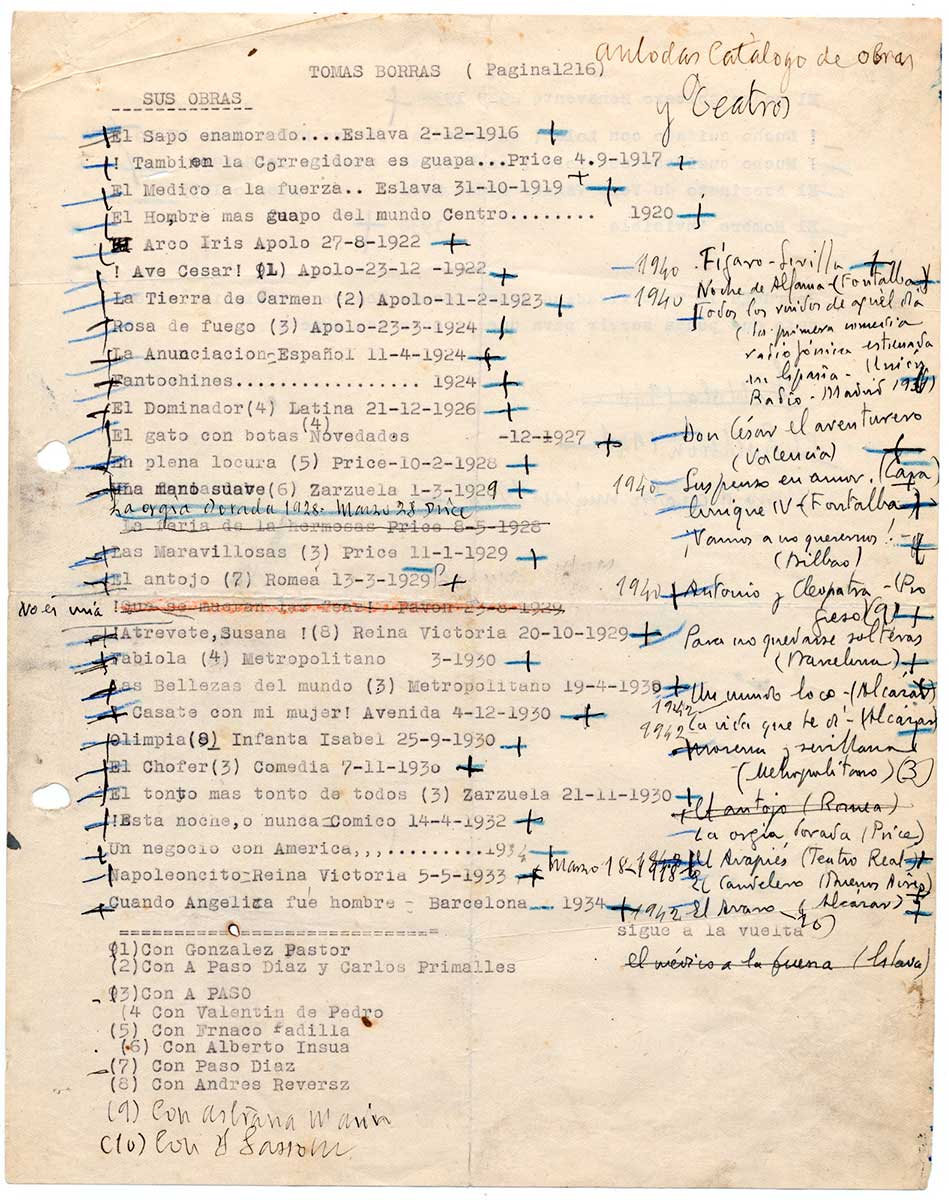 anlodas Catálogo de obras
TOMAS BORRAS ( Pagina1216)
y Teatros
SUS OBRAS
El Sapo enamorado....Eslava 2-12-1916
! Tambien la Corregidora es guapa...Price 4.9-1917
El Medico a la fuerza.. Eslava 31-10-1919
El Hombre mas guapo del mundo Centro........ 1920
Arco Iris Apolo 27-8-1922
! Ave Cesar! (1) Apolo-23-12 -1922
La Tierra de Carmen (2) Apolo-11-2-1923
Rosa de fuego (3) Apolo-23-3-1924
La Anunciacion-Español 11-4-1924
Fantochines................ 1924
El Dominador(4) Latina 21-12-1926
El gato con botas (4) Novedades -12-1927
En plena locura (5) Price-10-2-1928
La mano suave(6) Zarzuela 1-3-1929
La orgia dorada 1928- Marzo 28 Price
La feria de la hermosas Price 8-5-1928
Las Maravillosas (3) Price 11-1-1929
El antojo (7) Romea 13-3-1929
No es mia !que se mueran las feas!. Pavon 23-8-1929
!Atrevete,Susana !(8) Reina Victoria 20-10-1929
Fabiola (4) Metropolitano 3-1930
Las Bellezas del mundo (3) Metropolitano 19-4-1930
! Casate con mi mujer! Avenida 4-12-1930
Olimpia(8) Infanta Isabel 25-9-1930
El Chofer(3) Comedia 7-11-1930
El tonto mas tonto de todos (3) Zarzuela 21-11-1930
!Esta noche,o nunca-Comico 14-4-1932
Un negocio con America,,,.........1934
Napoleoncito-Reina Victoria 5-5-1933
Cuando Angeliza fué hombre - Barcelona... 1934
1940 Fígaro-Sevilla
1940 Noche de Alfama-(Fontalba)
Todos los ruidos de aquel dia
(la primera comedia
radiofónica estrenada
en España - Unión
Radio-Madrid
Don César el aventurero
(Valencia)
1940 Suspenso en amor.
Enrique IV-(Fontalba)
¡Vamos a no querernos!
(Bilbao)
1940 Antonio y Cleopatra -(Pro
greso)(9)
Para no quedarse solteras
(Barcelona)
Un mundo loco-(Alcázar)
1942
1942 La vida que te di-(Alcázar)
Morena y sevillana
(Metropolitano)(3)
El antojo (Romea)
La orgia dorada (Price)
Marzo 18- El Avapiés (Teatro Real)
El Candelero (Buenos Aires)
1942 El Avaro (Alcázar)
sigue a la vuelta
El médico a la fuerza (Eslava)
=============================
(1)Con Gonzalez Pastor
(2)Con A Paso Diaz y Carlos Primalles
(3)Con A PASO
(4 Con Valentin de Pedro
(5) Con Frnaco Padilla
(6) Con Alberto Insua
(7) Con Paso Diaz
(8) Con Andres Reversz
(9) Con Astrana Marin
(10) Con F Sassone